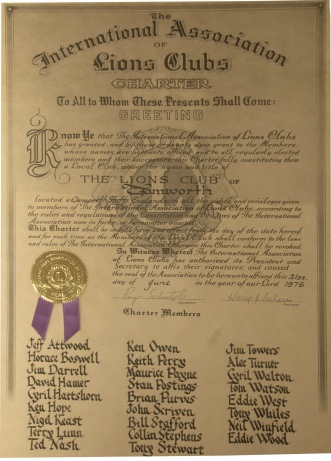 The
International Association
OF
Lions Clubs
CHARTER
To All to Whom These Presents Shall Come:
GREETING
Know Ye that The International Association of Lions Clubs
has granted and by these presents does grant to the Members,
whose names are hereunto affixed and to all regularly elected
members and their successors, this Charter fully constituting them
a Local Club, under the name and title of
THE LIONS CLUB OF
Tamworth
Located at Tamworth England with all the rights and privileges given
to members of The International Association of Lions Clubs, according to
the rules and regulations of the Constitution and By-Laws of The International
Association now in force or hereafter enacted.
This Charter shall be in full force and effect from the day of the date hereof
and for such time as the Members of the Club shall conform to the laws
and rules of The International Association, otherwise this Charter shall be revoked
In Witness Whereof The International Association
of Lions Clubs has authorized its President and
Secretary to affix their signatures, and caused
the seal of the Association to be hereunto affixed this
day of June in the year of our Lord 1976
Charter Members
Jeff Attwood
Horace Boswell
Jim Darrell
David Hamer
Cyril Hartshorn
Ken Hope
Nigel Keast
Terry Lunn
Ted Nash
Ken Owen
Keith Perry
Maurice Payne
Stan Postings
Brian Purvis
John Scriven
Bill Stafford
Collin Stephens
Tony Stewart
Jim Towers
Alec Turner
Cyril Walton
Tom Watson
Eddie West
Tony Whiles
Neil Winfield
Eddie Wood